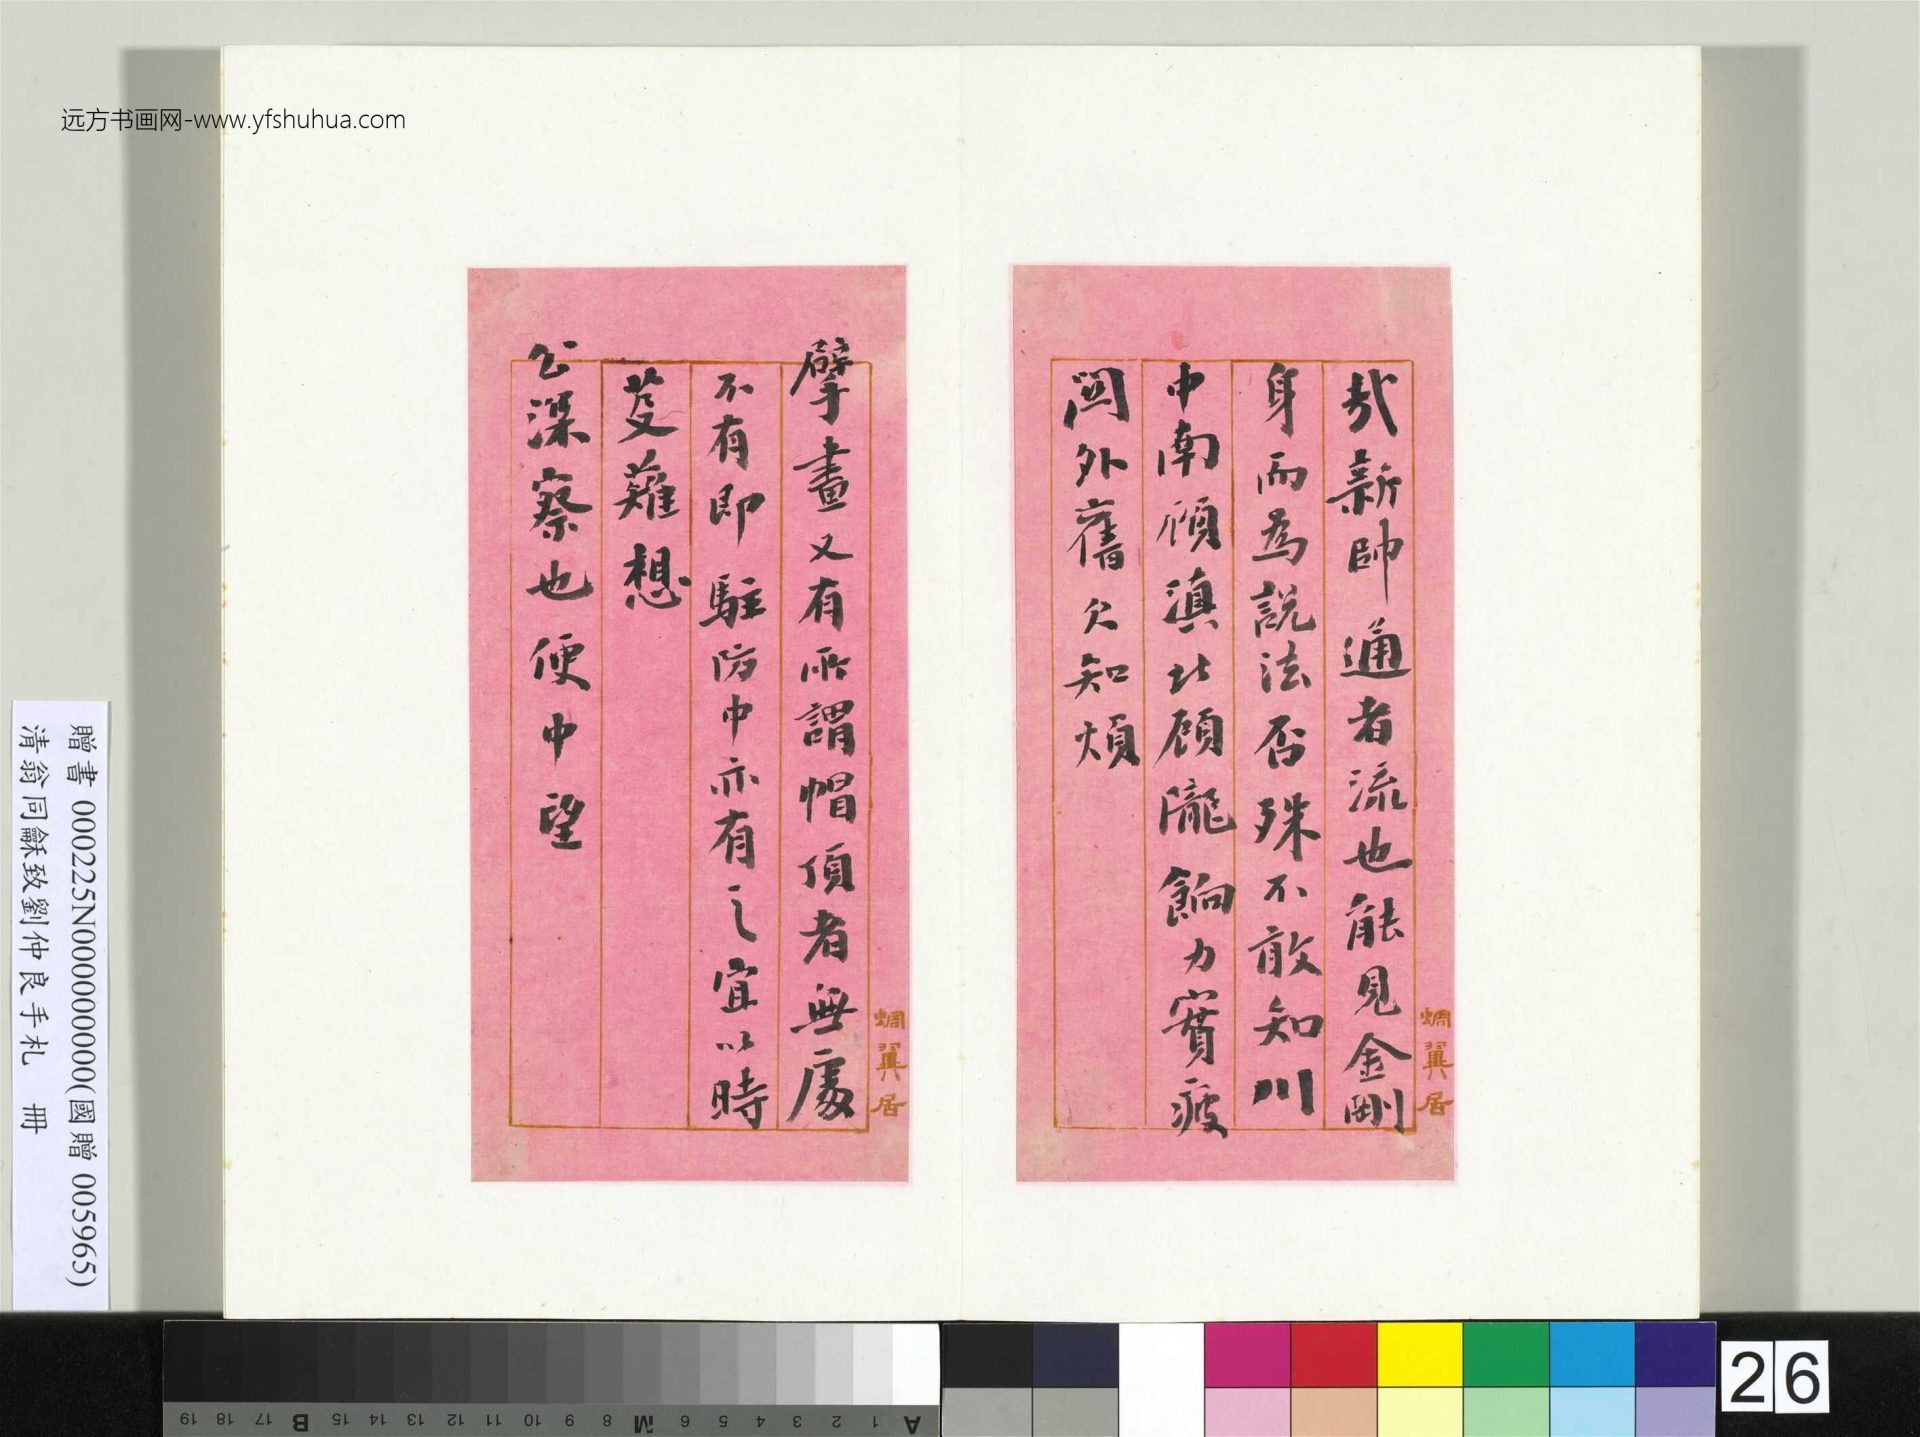 远方书画网-www.yfshuhua.com
哉新帥通者流也能見金剛
身而為說法否殊不敢知川
中南顧滇北顧隴餉力實疲
閫外舊欠知煩
蜩翼居
擘畫又有所謂帽頂者無處
不有即駐防中亦有之宜以時
芟薙想
公深察也便中望
蜩翼居
贈書 000225N000000000(國贈 005965)
清翁同龢致劉仲良手札 冊
A 1 2 3 4 5 6 M 8 9 10 11 12 13 14 15 B 17 18 19
26